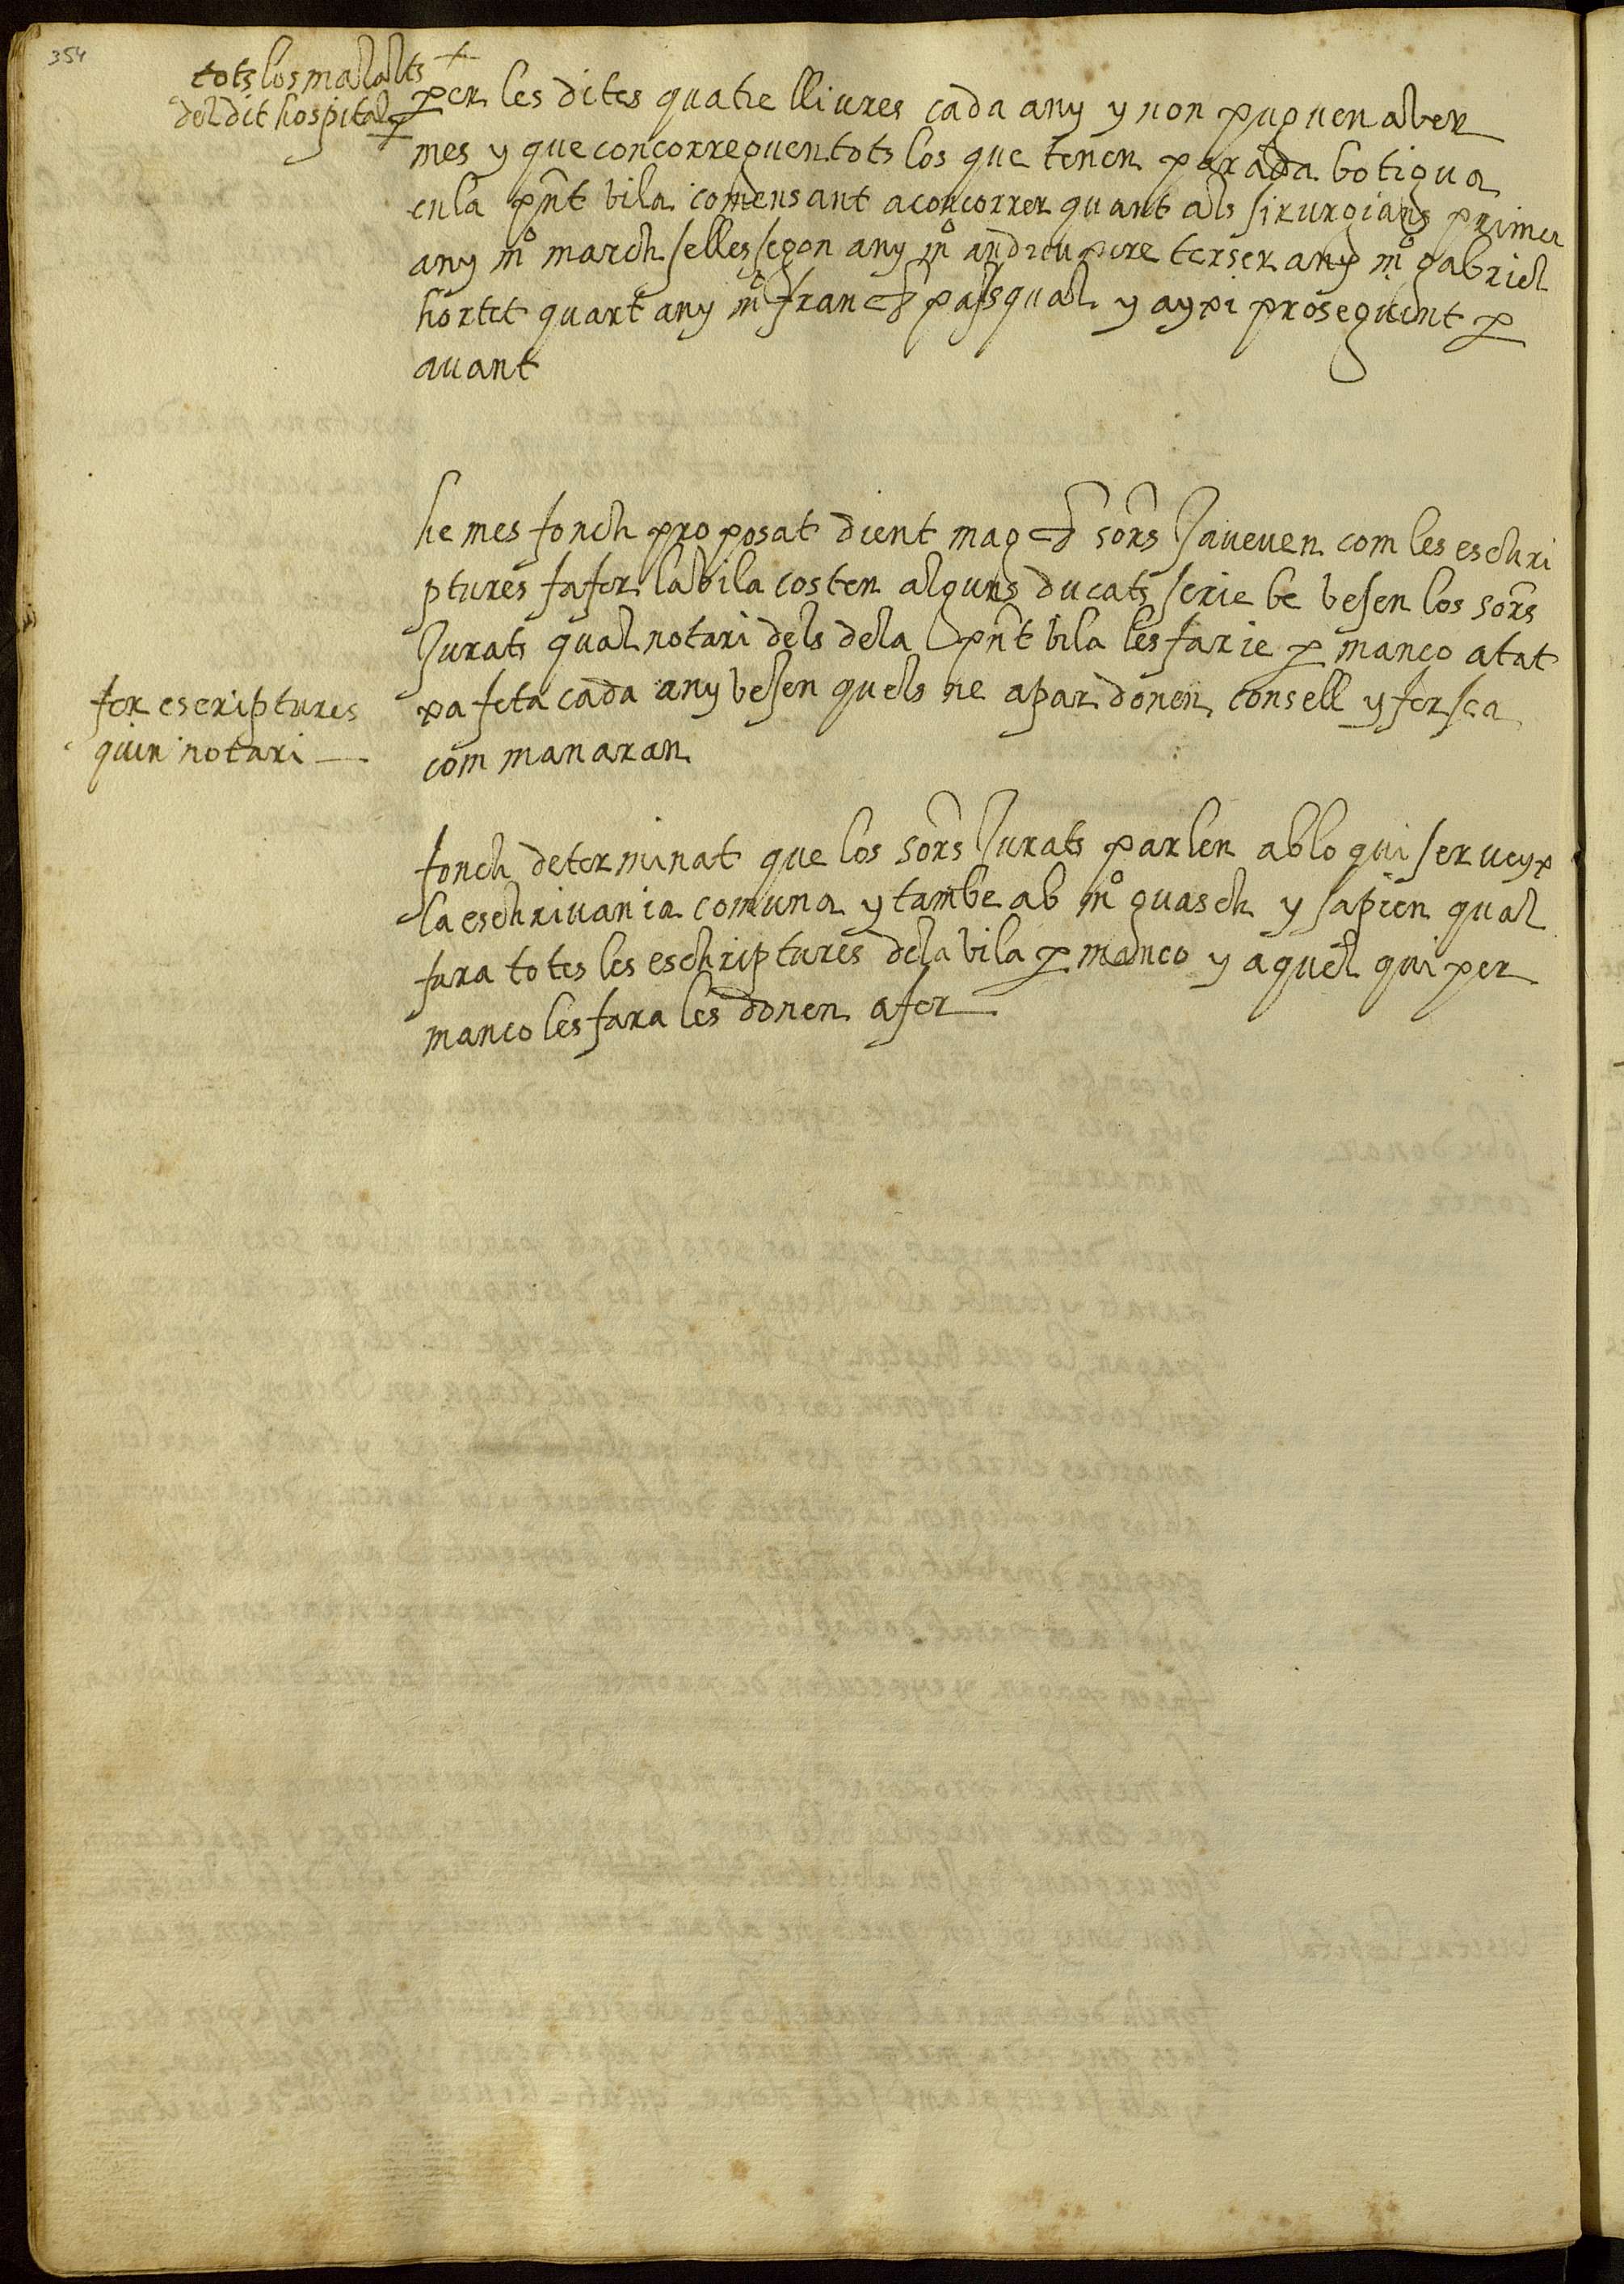 354
tots los malalts +
del dit hospital +
per les dites quatre lliures cada any y non puguen aver
mes y que concorreguen tots los que tenen parada botigua
en la pñt vila comensant a concorrer quant als sirurgians primer
any mº march selles segon any mº andreu pere terser any mº gabriel
hortet quart any mº franch pasqual y aypi proseguint p
auant
he mes fonch proposat dient magchs sors Ja veuen com les eschri
ptures fa fer la vila costen alguns ducats serie be vesen los sors
Jurats qual notari dels de la pñt vila les farie p manco a tat
xa feta cada any vesen quels ne apar donen consell y fersea
com manaran
fer escriptures
quin notari
fonch determinat que los sors Jurats parlen ab lo qui serveyx
la eschrivania comuna y tambe ab mº guasch y sapien qual
fara totes les eschriptures de la vila p manco y aquel qui per
manco les fara les donen a fer